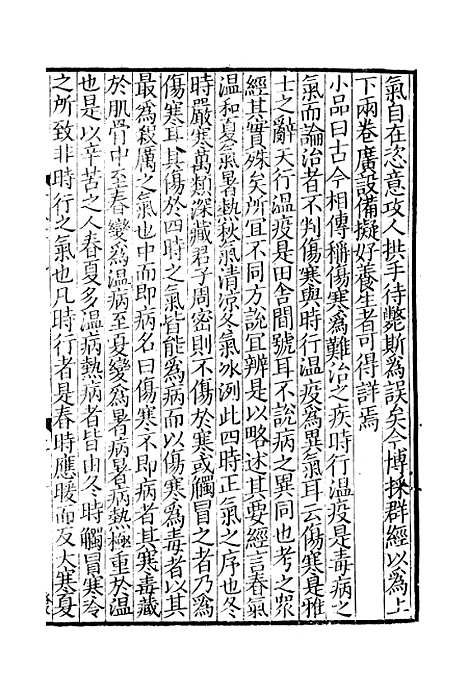 氣自在恣意攻人拱手待斃斯爲誤矣今博採群經以爲上
下兩卷廣設備擬好養生者可得詳焉
小品曰古今相傳稱傷寒爲難治之疾時行溫疫是毒病之
氣而論治者不判傷寒與時行溫疫爲異氣耳云傷寒是雅
士之辭天行溫疫是田舍間號耳不說病之異同也考之眾
經其實殊矣所宜不同方說宜辨是以略述其要經言春氣
溫和夏氣暑熱秋氣清涼冬氣冰冽此四時正氣之序也冬
時嚴寒萬類深藏君子周密則不傷於寒或觸冒之者乃爲
傷寒耳其傷於四時之氣皆能爲病而以傷寒爲毒者以其
最爲殺厲之氣也中而即病名曰傷寒不即病者其寒毒藏
於肌骨中至春變爲溫病至夏變爲暑病暑病熱極重於溫
也是以辛苦之人春夏多溫病熱病者皆由冬時觸冒寒冷
之所致非時行之氣也凡時行者是春時應暖而反大寒夏